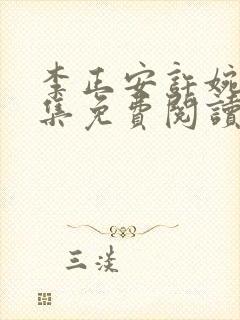 李正安許婉
集免費閱讀
三淡